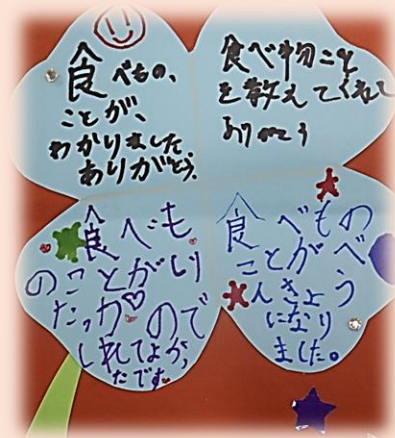 食べもの、
ことが、
わかりました。
ありがとう。
食べ物こと
を教えてくれて
ありがとう
食べも
のことがしり
たっかので
しれてよかっ
たです。
食べもの
ことがべ
んきょう
になり
ました。